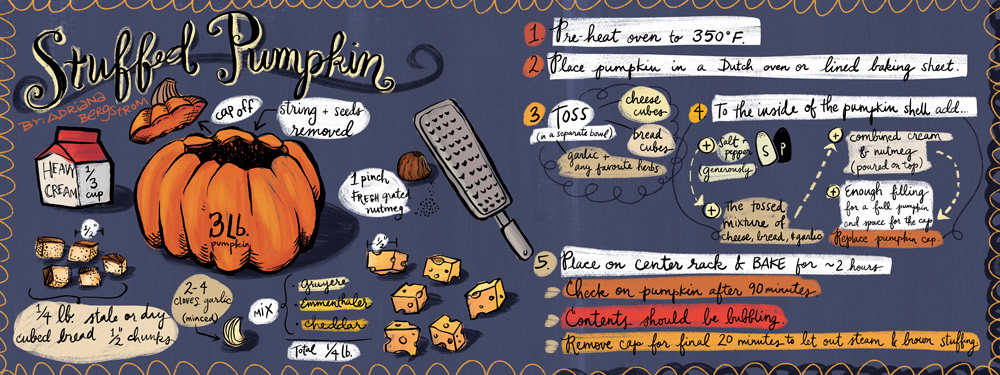 Stuffed Pumpkin
BY: ADRIANA
BERGSTROM
CAP OFF
string + seeds
removed
HEAVY
CREAM
1/3
cup
3 Lb.
pumpkin
1 pinch
FRESH grated
nutmeg
1/2"
1/2"
1/4 lb. stale or dry
cubed bread 1/2" chunks
2-4
cloves garlic
(minced)
MIX
gruyere
emmenthaler
cheddar
Total 1/4 lb.
1. Pre-heat oven to 350°F.
2. Place pumpkin in a Dutch oven or lined baking sheet.
3 TOSS
(in a separate bowl)
cheese
cubes
bread
cubes
garlic +
any favorite herbs
4 To the inside of the pumpkin shell add...
+ Salt +
pepper
generously
S P
+ The tossed
mixture of
cheese, bread, + garlic
+ combined cream
& nutmeg
(poured on top)
+ Enough filling
for a full pumpkin
and space for the cap
Replace pumpkin cap.
5. Place on center rack & BAKE for ~2 hours
Check on pumpkin after 90 minutes
Contents should be bubbling
Remove cap for final 20 minutes to let out steam & brown stuffing